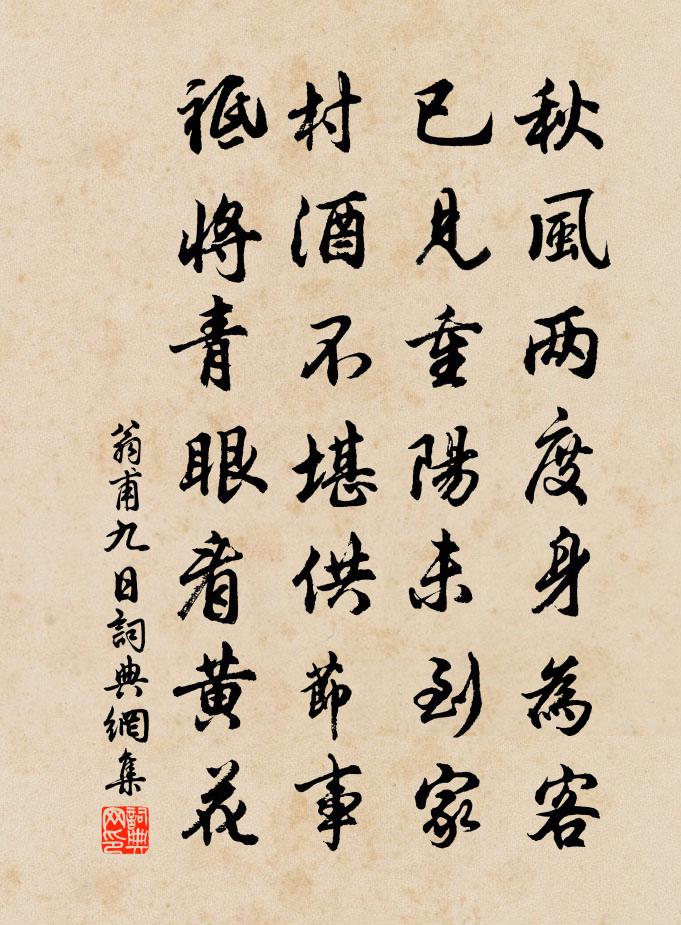 秋風两度身為客
已見重陽未到家
村酒不堪供節事
祗將青眼看黄花
翁甫九日詞典網集
詞典网印